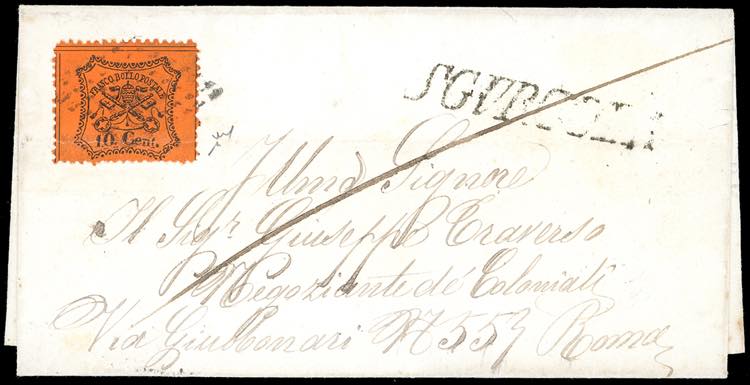 FRANCO BOLLO POSTALE
10 Cent.
SGURGOLA
Illmo Signore
Il Sigr Giuseppe Traverso
Negoziante de Coloniali
Via Giubbonari N 55 Roma